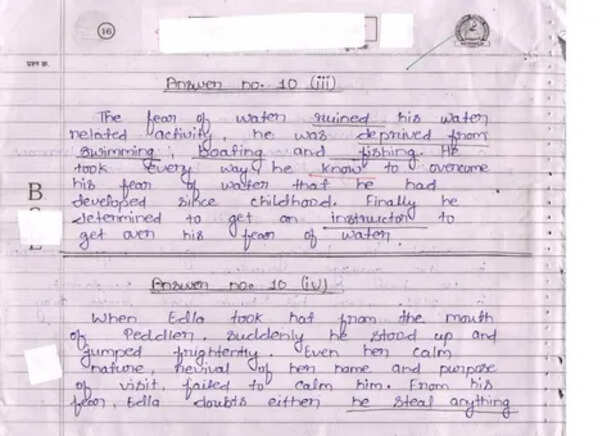 16
प्रश्न क्र.
Answer no. 10 (iii)
The fear of water ruined his water
related activity. he was deprived from
swimming, boating and fishing. He
took every way he know to overcome
his fear of water that he had
developed since childhood. Finally he
determined to get an instructor to
get over his fear of water.
B
S
E
Answer no. 10 (iv)
When Edla took hat from the mouth
of Peddler. Suddenly he stood up and
jumped frightently. Even her calm
nature, revival of her name and purpose
of visit, failed to calm him. From his
fear, Edla doubts either he steal anything